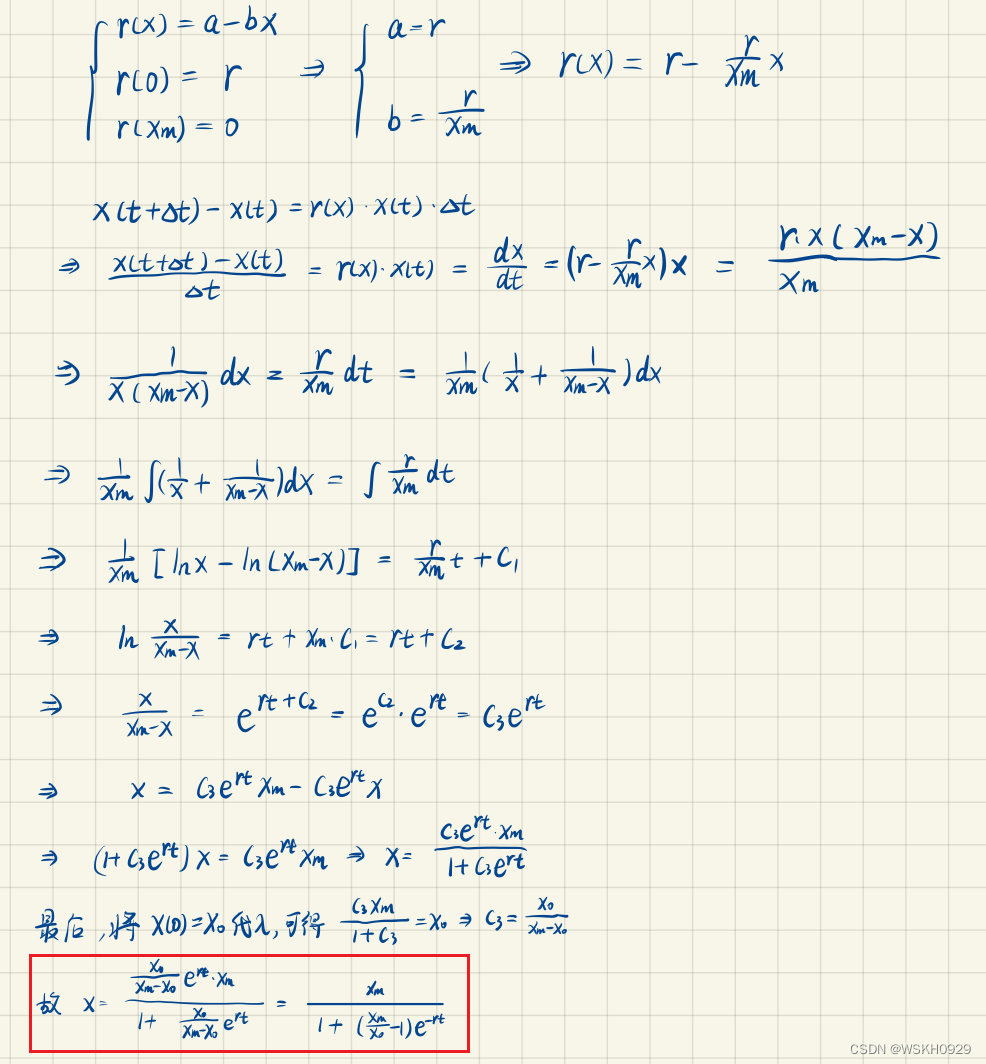 { r(x) = a-bx
r(0) = r
r(xm) = 0 ⇒ { a=r
b = r/xm ⇒ r(x) = r - r/xm x
x(t+Δt) - x(t) = r(x)·x(t)·Δt
⇒ (x(t+Δt) - x(t))/Δt = r(x)·x(t) = dx/dt = (r - r/xm x)x = r·x(xm-x)/xm
⇒ 1/(x(xm-x)) dx = r/xm dt = 1/xm (1/x + 1/(xm-x))dx
⇒ 1/xm ∫(1/x + 1/(xm-x))dx = ∫ r/xm dt
⇒ 1/xm [lnx - ln(xm-x)] = r/xm t + C₁
⇒ ln x/(xm-x) = rt + xm·C₁ = rt + C₂
⇒ x/(xm-x) = e^(rt+C₂) = e^(C₂)·e^(rt) = C₃e^(rt)
⇒ x = C₃e^(rt) xm - C₃e^(rt) x
⇒ (1+C₃e^(rt))x = C₃e^(rt) xm ⇒ x = (C₃e^(rt)·xm)/(1+C₃e^(rt))
最后,将 x(0)=x₀ 代入,可得 C₃xm/(1+C₃) = x₀ ⇒ C₃ = x₀/(xm-x₀)
故 x = (x₀/(xm-x₀) e^(rt)·xm)/(1 + x₀/(xm-x₀) e^(rt)) = xm/(1 + (xm/x₀ -1)e^(-rt))
CSDN @WSKH0929